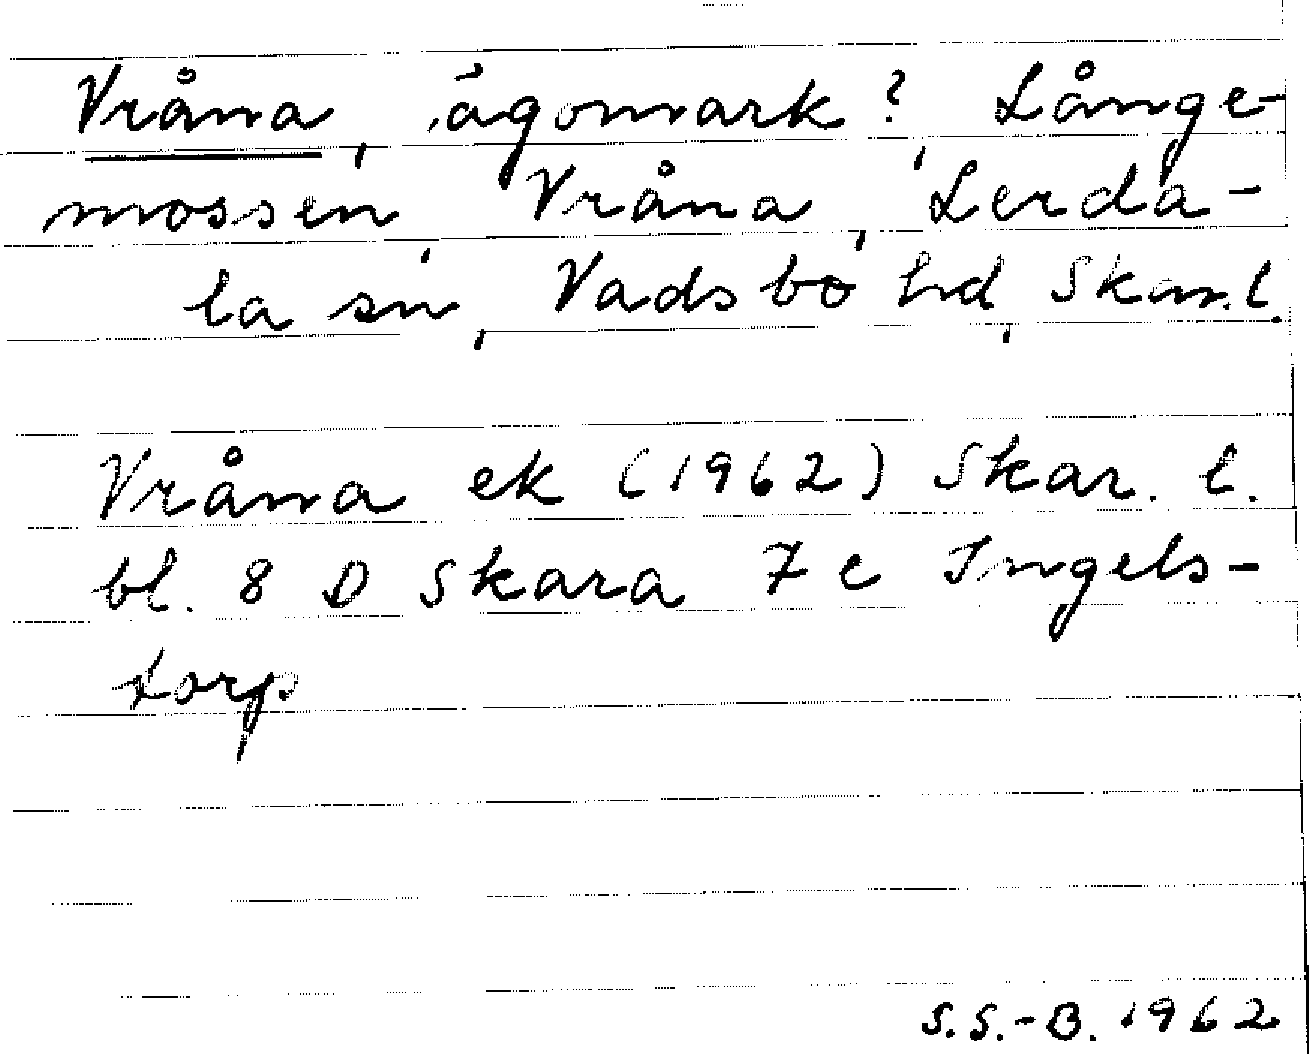 Vråna, ägomark?, Långe-
mossen, Vråna, Lerda-
la sn, Vadsbo hd, Skar. l.
Vråna ek (1962) Skar. l.
bl. 8 D Skara 7 c Ingels-
torp
S.S.-B. 1962